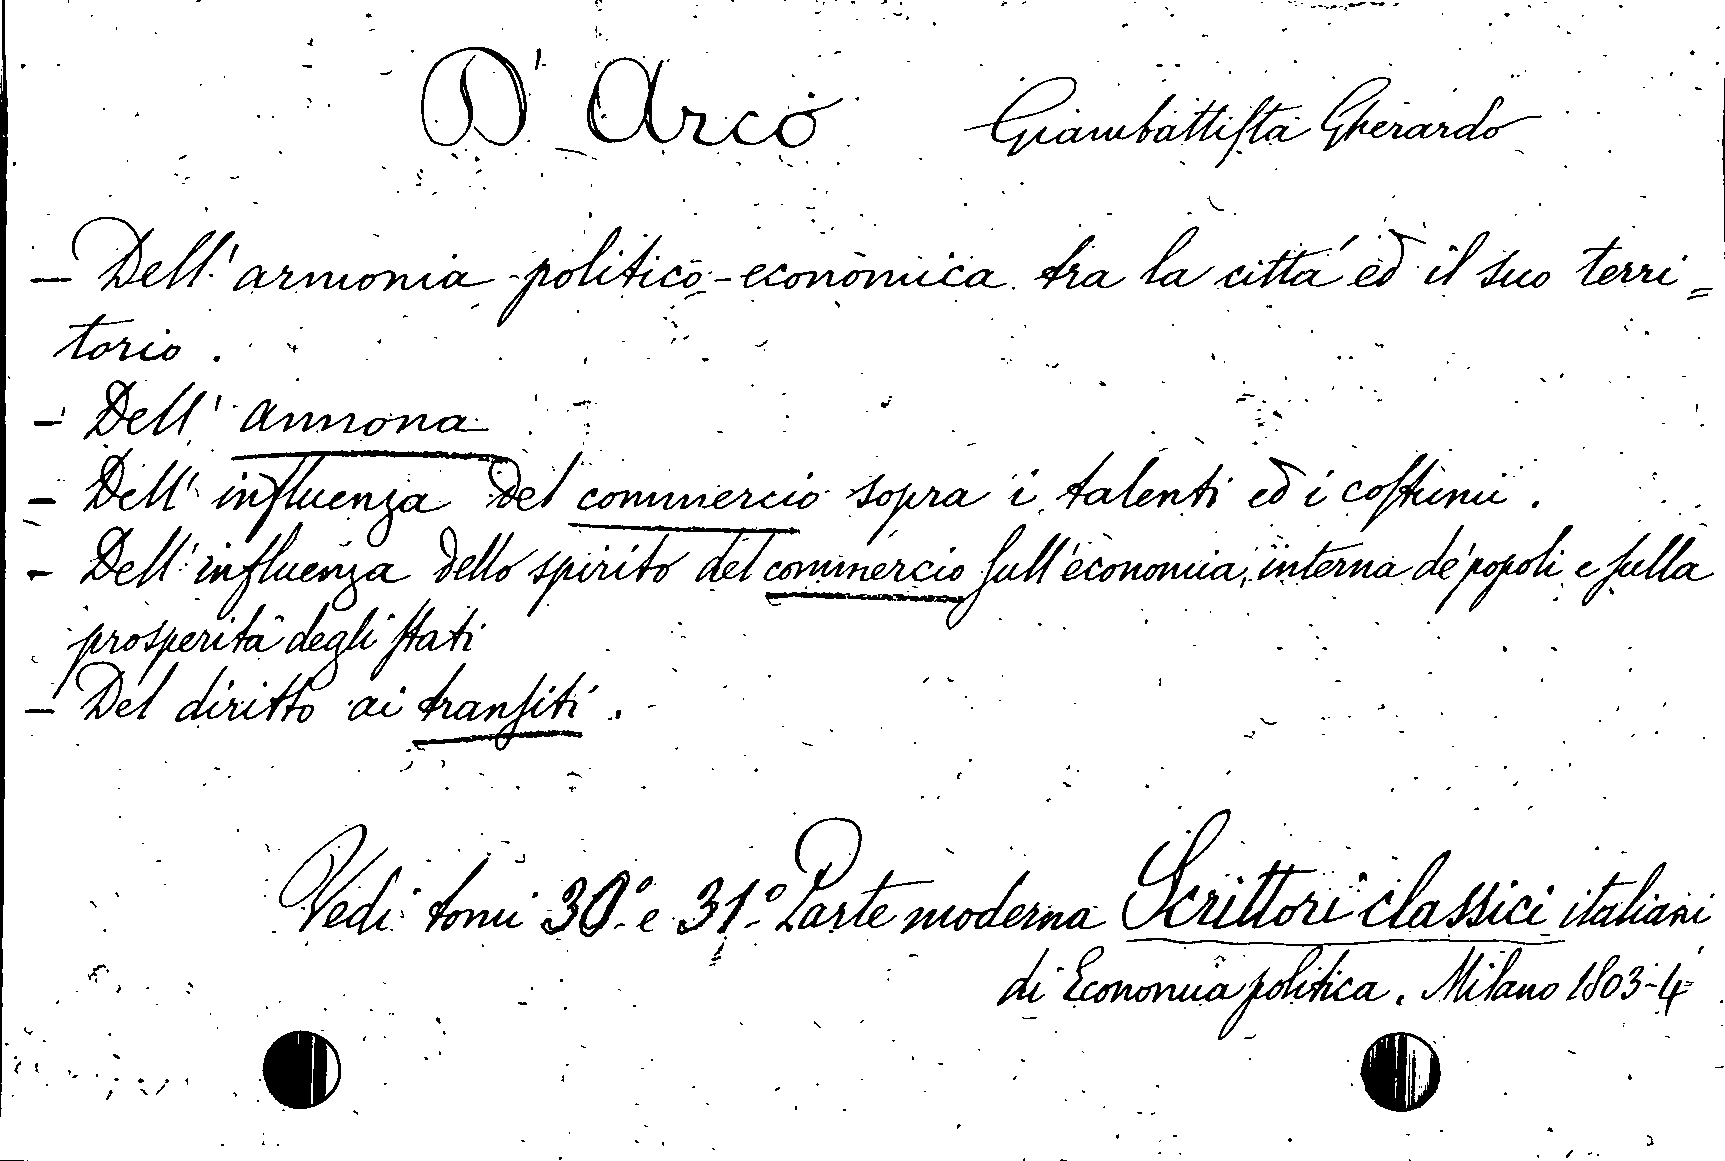 D' Arco Giambattista Gherardo
- Dell' armonia politico-economica tra la città ed il suo terri=
torio.
- Dell' annona
- Dell' influenza del commercio sopra i talenti ed i costumi.
- Dell' influenza dello spirito del commercio sull'economia interna de' popoli e sulla
prosperità degli stati
- Del diritto ai transiti.
Vedi tomi 30° e 31° Parte moderna Scrittori classici italiani
di Economia politica. Milano 1803-4